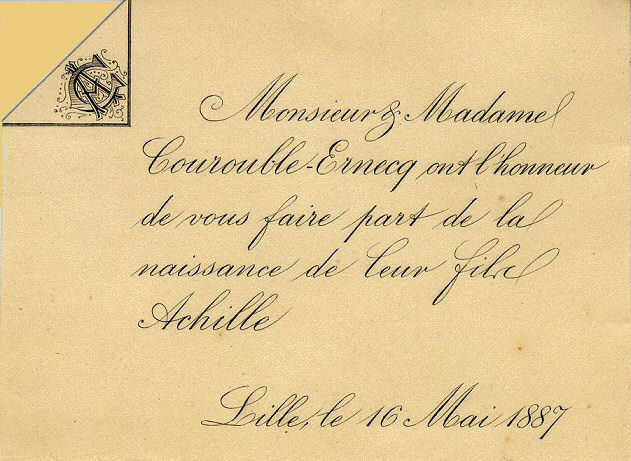 Monsieur & Madame
Courouble-Ernecq ont l'honneur
de vous faire part de la
naissance de leur fils
Achille
Lille, le 16 Mai 1887